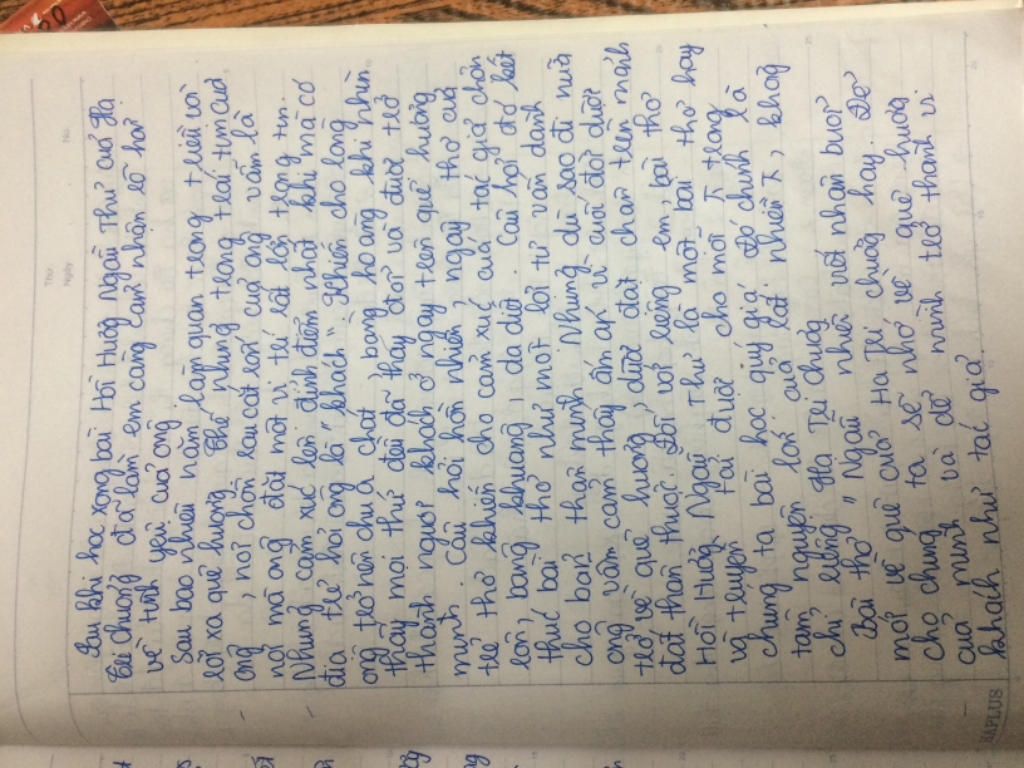 Sau khi học xong bài Hồi Hương Ngẫu Thư của Hạ
Tri chương đã làm em càng cảm nhận rõ hơn
về tình yêu của ông
Sau bao nhiêu năm làm quan trong triều và
rời xa quê hương. Thế nhưng trong trái tim của
ông, nơi chôn rau cắt rốn của ông vẫn là
nơi mà ông đặt một vị trí rất lớn trong tim.
Những cảm xúc lên đỉnh điểm nhất khi mà có
đứa trẻ hỏi ông là "khách". Khiến cho lòng
ông trở nên chua chát, bàng hoàng khi nhìn
thấy mọi thứ đều đã thay đổi và được trở
thành người khách ở ngay trên quê hương
mình. Câu hỏi hồn nhiên, ngây thơ của
trẻ thơ khiến cho cảm xúc của tác giả chộn
rộn, bâng khuâng, da diết. Câu hỏi đó kết
thúc bài thơ như một lời tự vấn dành
cho bản thân mình. Nhưng dù sao đi nữa
ông vẫn cảm thấy ấm áp vì cuối đời được
trở về quê hương, được đặt chân trên mảnh
đất thân thuộc. Đối với riêng em, bài thơ
Hồi Hương Ngẫu Thư là một bài thơ hay
và truyền tải được cho mỗi ㅈ trong
chúng ta bài học quý giá. Đó chính là
tâm nguyện lớn của rất nhiều ㅈ, không
chỉ riêng Hạ Tri chương
Bài thơ "Ngẫu nhiên viết nhân buổi
mới về quê của Hạ Tri chương hay. Để
cho chúng ta sẽ nhớ về quê hương
của mình và để mình trở thành vị
khách như tác giả.
HAPLUS
Thứ:
Ngày
No.